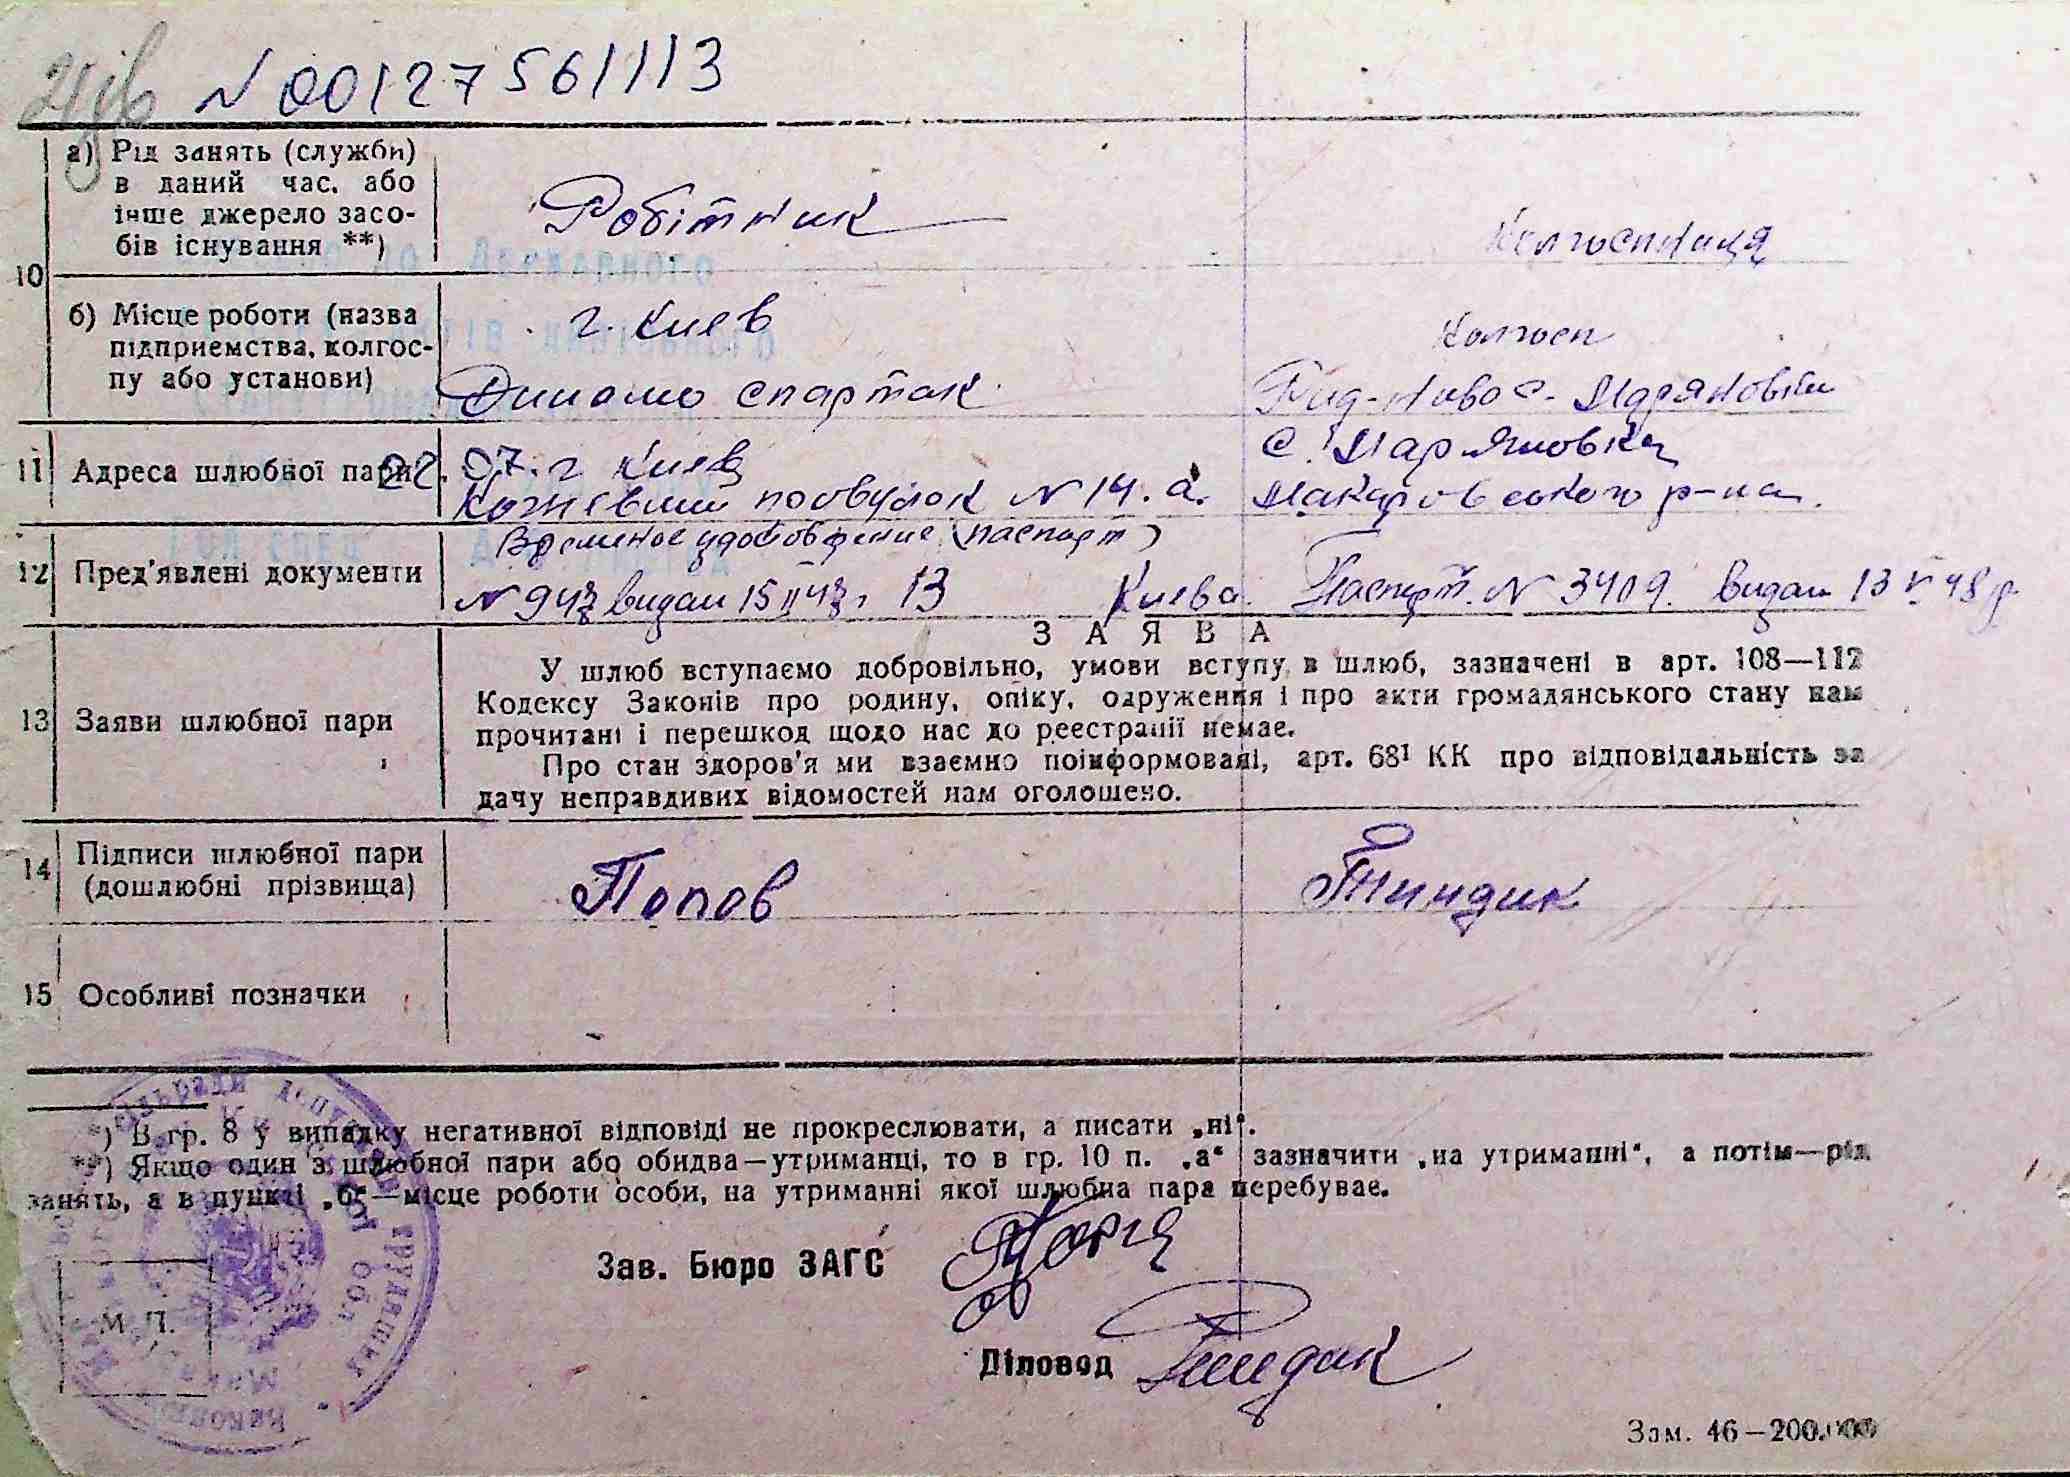 N 00127561113
а) Рід занять (служби)
в даний час, або
інше джерело засо-
бів існування **)
Робітник
Колгоспниця
10
б) Місце роботи (назва
підприємства, колгос-
пу або установи)
г. Киев
Динамо спартак
Колгосп
11 Адреса шлюбної пари
22. 07. г Киев
N 14. а.
с. Мар'яновка
Макаровського р-на.
12 Пред'явлені документи
(паспорт)
N 943 видан 15 II 43 г 13 Киева.
Паспорт. N 3409. видан 13 V 48 р.
ЗАЯВА
13 Заяви шлюбної пари
У шлюб вступаємо добровільно, умови вступу в шлюб, зазначені в арт. 108—112
Кодексу Законів про родину, опіку, одруження і про акти громадянського стану нам
прочитані і перешкод щодо нас до реєстрації немає.
Про стан здоров'я ми взаємно поінформовані, арт. 68¹ КК про відповідальність за
дачу неправдивих відомостей нам оголошено.
14 Підписи шлюбної пари
(дошлюбні прізвища)
Попов
15 Особливі позначки
*) В гр. 8 у випадку негативної відповіді не прокреслювати, а писати „ні“.
**) Якщо один з шлюбної пари або обидва—утриманці, то в гр. 10 п. „а“ зазначити „на утриманні“, а потім—рід
занять, а в пункті „б“—місце роботи особи, на утриманні якої шлюбна пара перебуває.
Зав. Бюро ЗАГС
М. П.
Діловод
Зам. 46—200.000